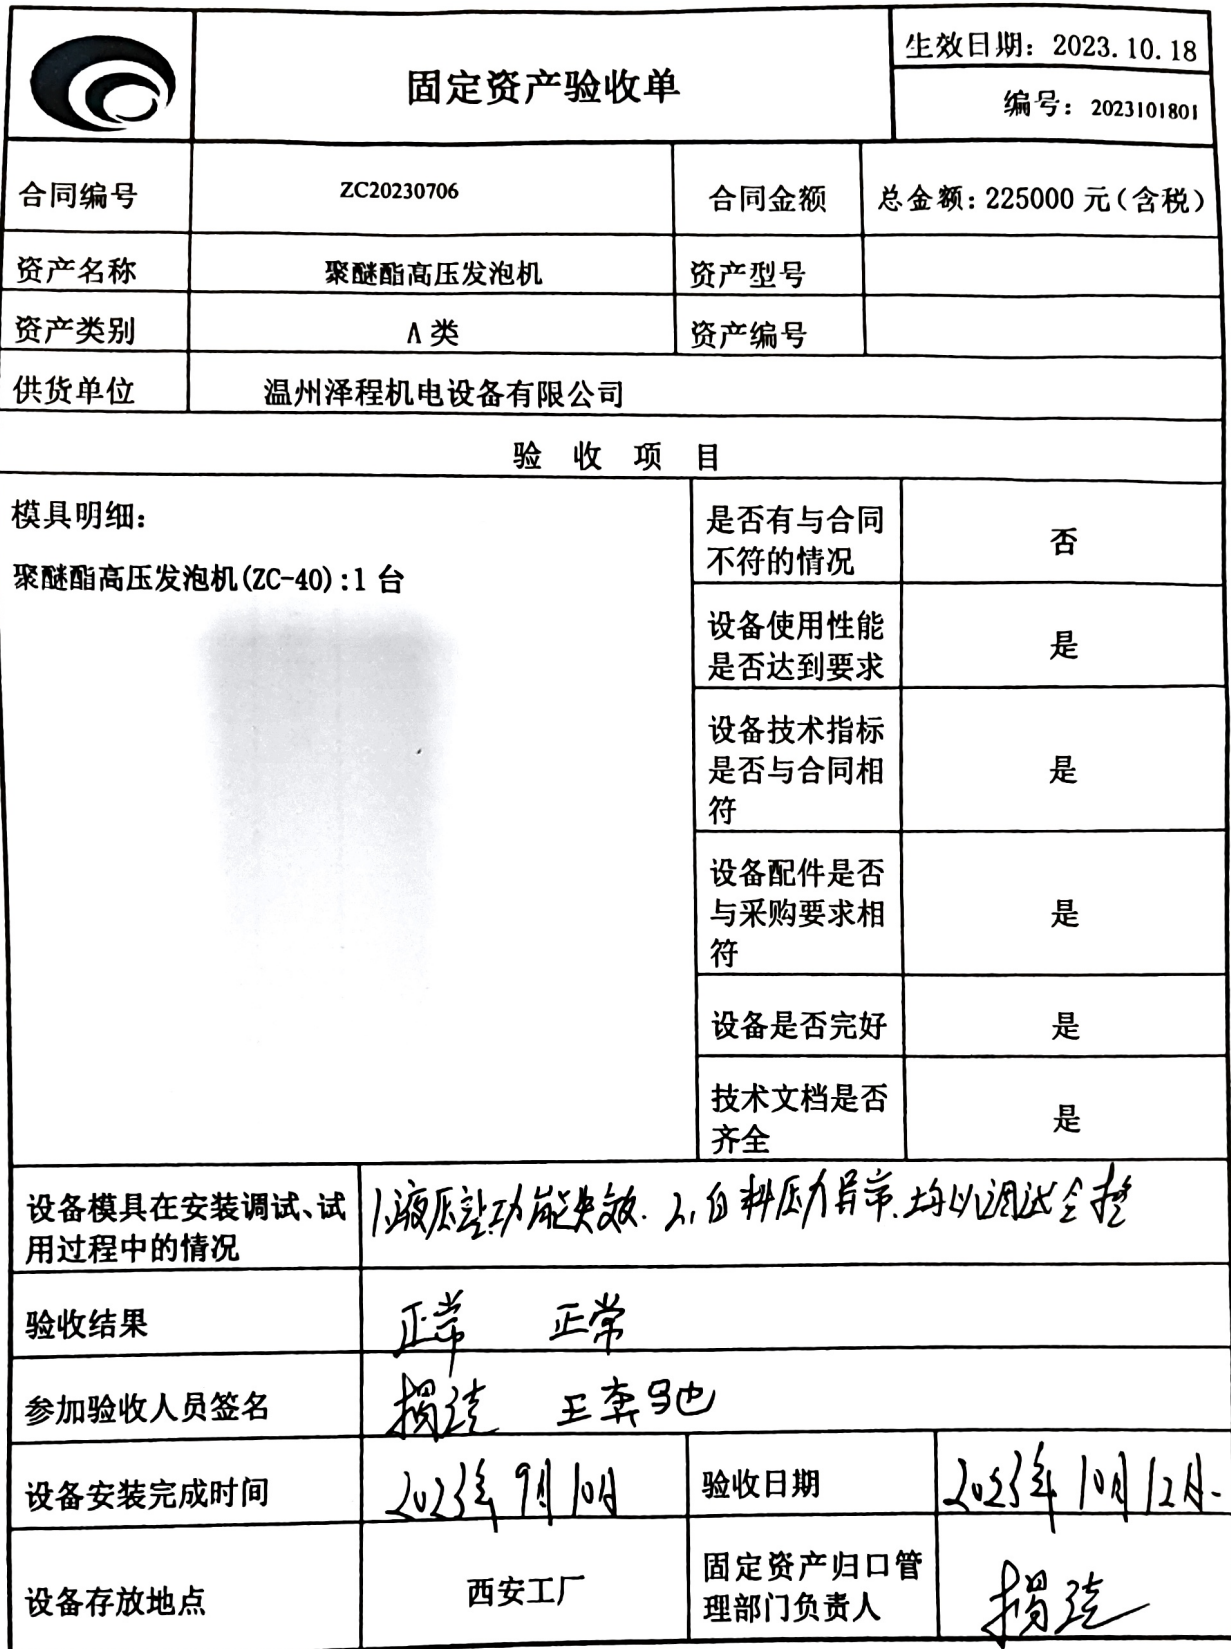 生效日期：2023.10.18
固定资产验收单
编号：2023101801
合同编号 ZC20230706 合同金额 总金额：225000 元（含税）
资产名称 聚醚酯高压发泡机 资产型号
资产类别 A 类 资产编号
供货单位 温州泽程机电设备有限公司
验 收 项 目
模具明细：
聚醚酯高压发泡机(ZC-40)：1 台
是否有与合同
不符的情况
否
设备使用性能
是否达到要求
是
设备技术指标
是否与合同相
符
是
设备配件是否
与采购要求相
符
是
设备是否完好 是
技术文档是否
齐全
是
设备模具在安装调试、试
用过程中的情况
1.液压站功能失效. 2.白料压力异常.均以调试完整
验收结果 正常 正常
参加验收人员签名 王奔驰
设备安装完成时间 2023年9月10日 验收日期 2023年10月12日.
设备存放地点 西安工厂
固定资产归口管
理部门负责人